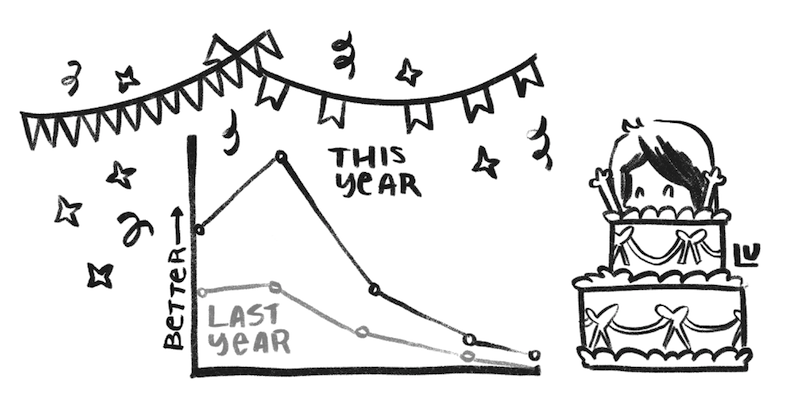 THIS
YEAR
BETTER
LAST
YEAR
LU